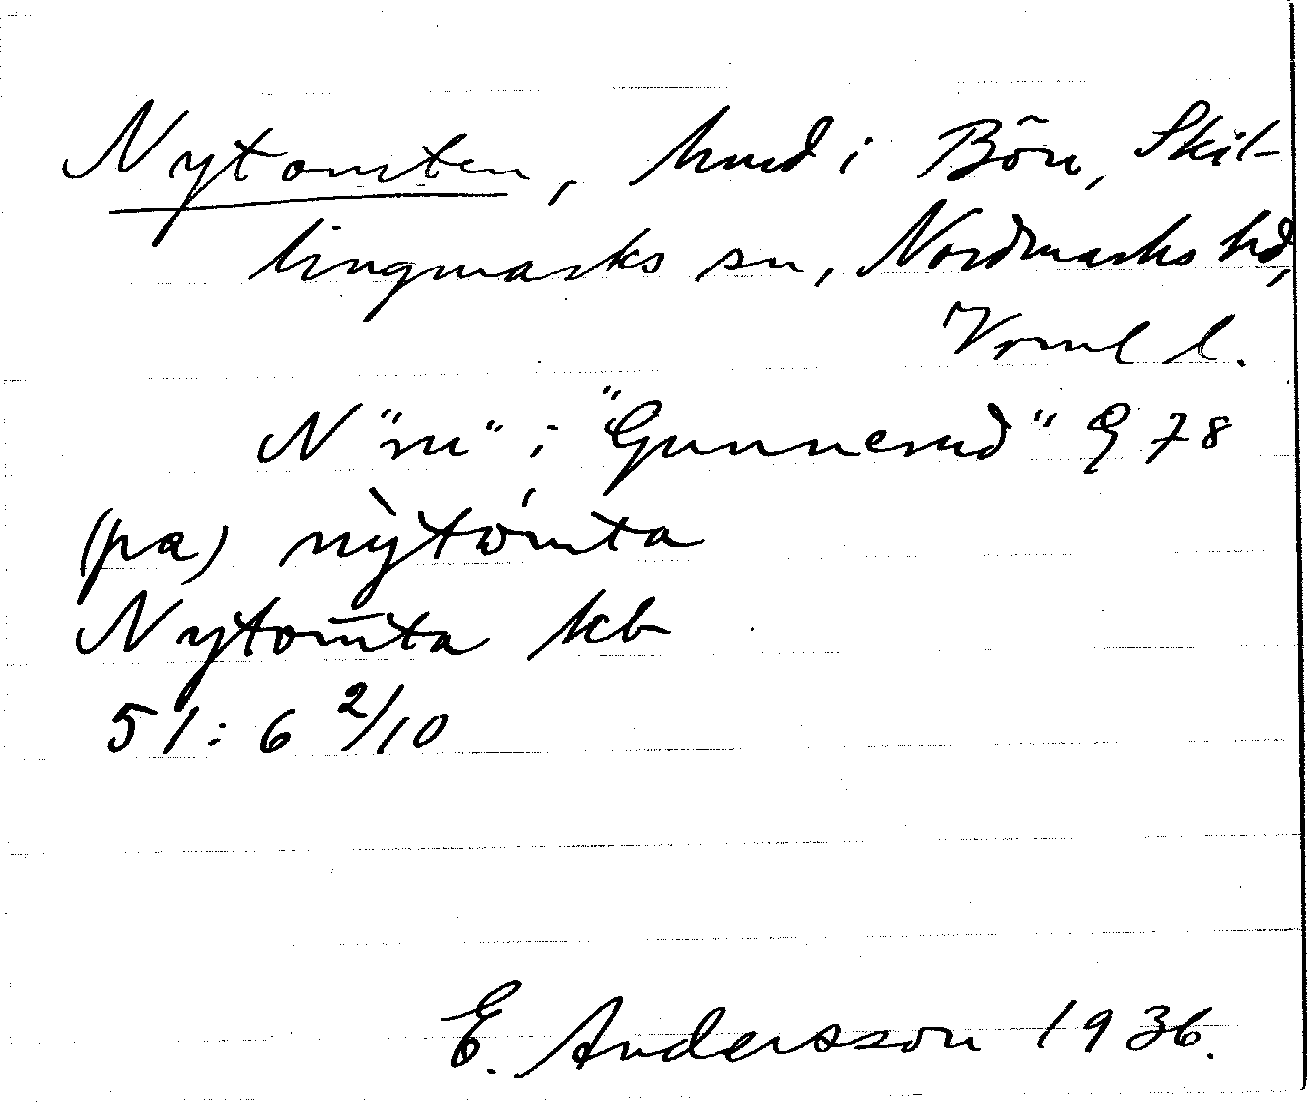 Nytomten, hmd i Bön, Skil-
lingmarks sn, Nordmarks hd,
Vrml l.
N "ru" i "Gunnerud" E 78
(pa) nỳtómta
Nytom̄ta kb
51: 6 2/10
E. Andersson 1936.